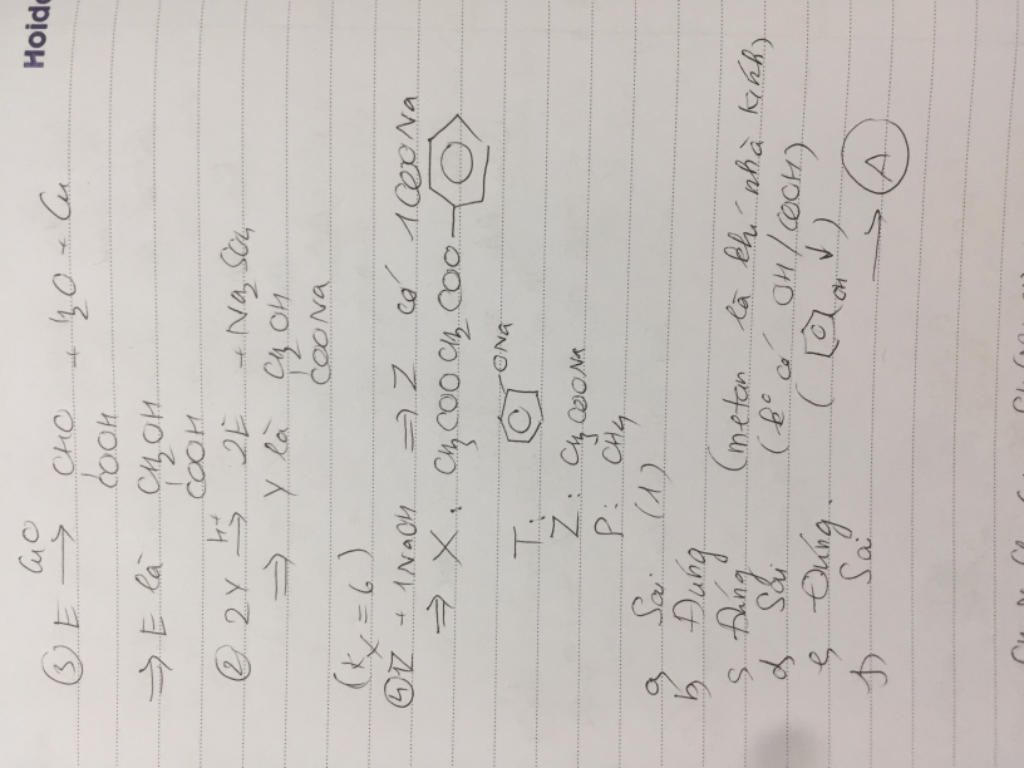 Hoida
③ E CuO → CHO + H₂O + Cu
COOH
⇒ E là CH₂OH
COOH
② 2Y H⁺ → 2E + Na₂SO₄
⇒ Y là CH₂OH
COONa
(Kₓ = 6)
④ Z + 1NaOH ⇒ Z có 1COONa
⇒ X : CH₃COOCH₂COO
T : ONa
Z : CH₃COONa
P : CH₄
a, Sai (1)
b, Đúng
c, Đúng (metan là khí nhà kính)
d, Sai (k° có OH/COOH)
e, Đúng. ( OH ↓ )
f, Sai → A